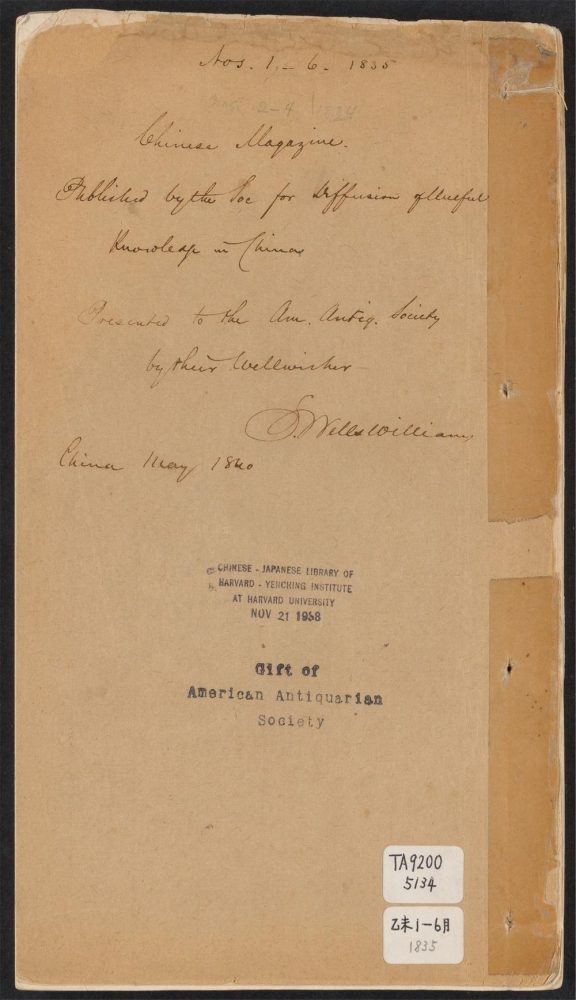 Nos. 1.- 6- 1835
2-4 1834
Chinese Magazine.
Published by the Soc for Diffusion of Useful
Knowledge in China
Presented to the Am. Antiq. Society
by their Wellwisher
S. Wells Williams
China May 1840
CHINESE - JAPANESE LIBRARY OF
HARVARD - YENCHING INSTITUTE
AT HARVARD UNIVERSITY
NOV 21 1938
Gift of
American Antiquarian
Society
TA9200
5134
乙未1-6月
1835